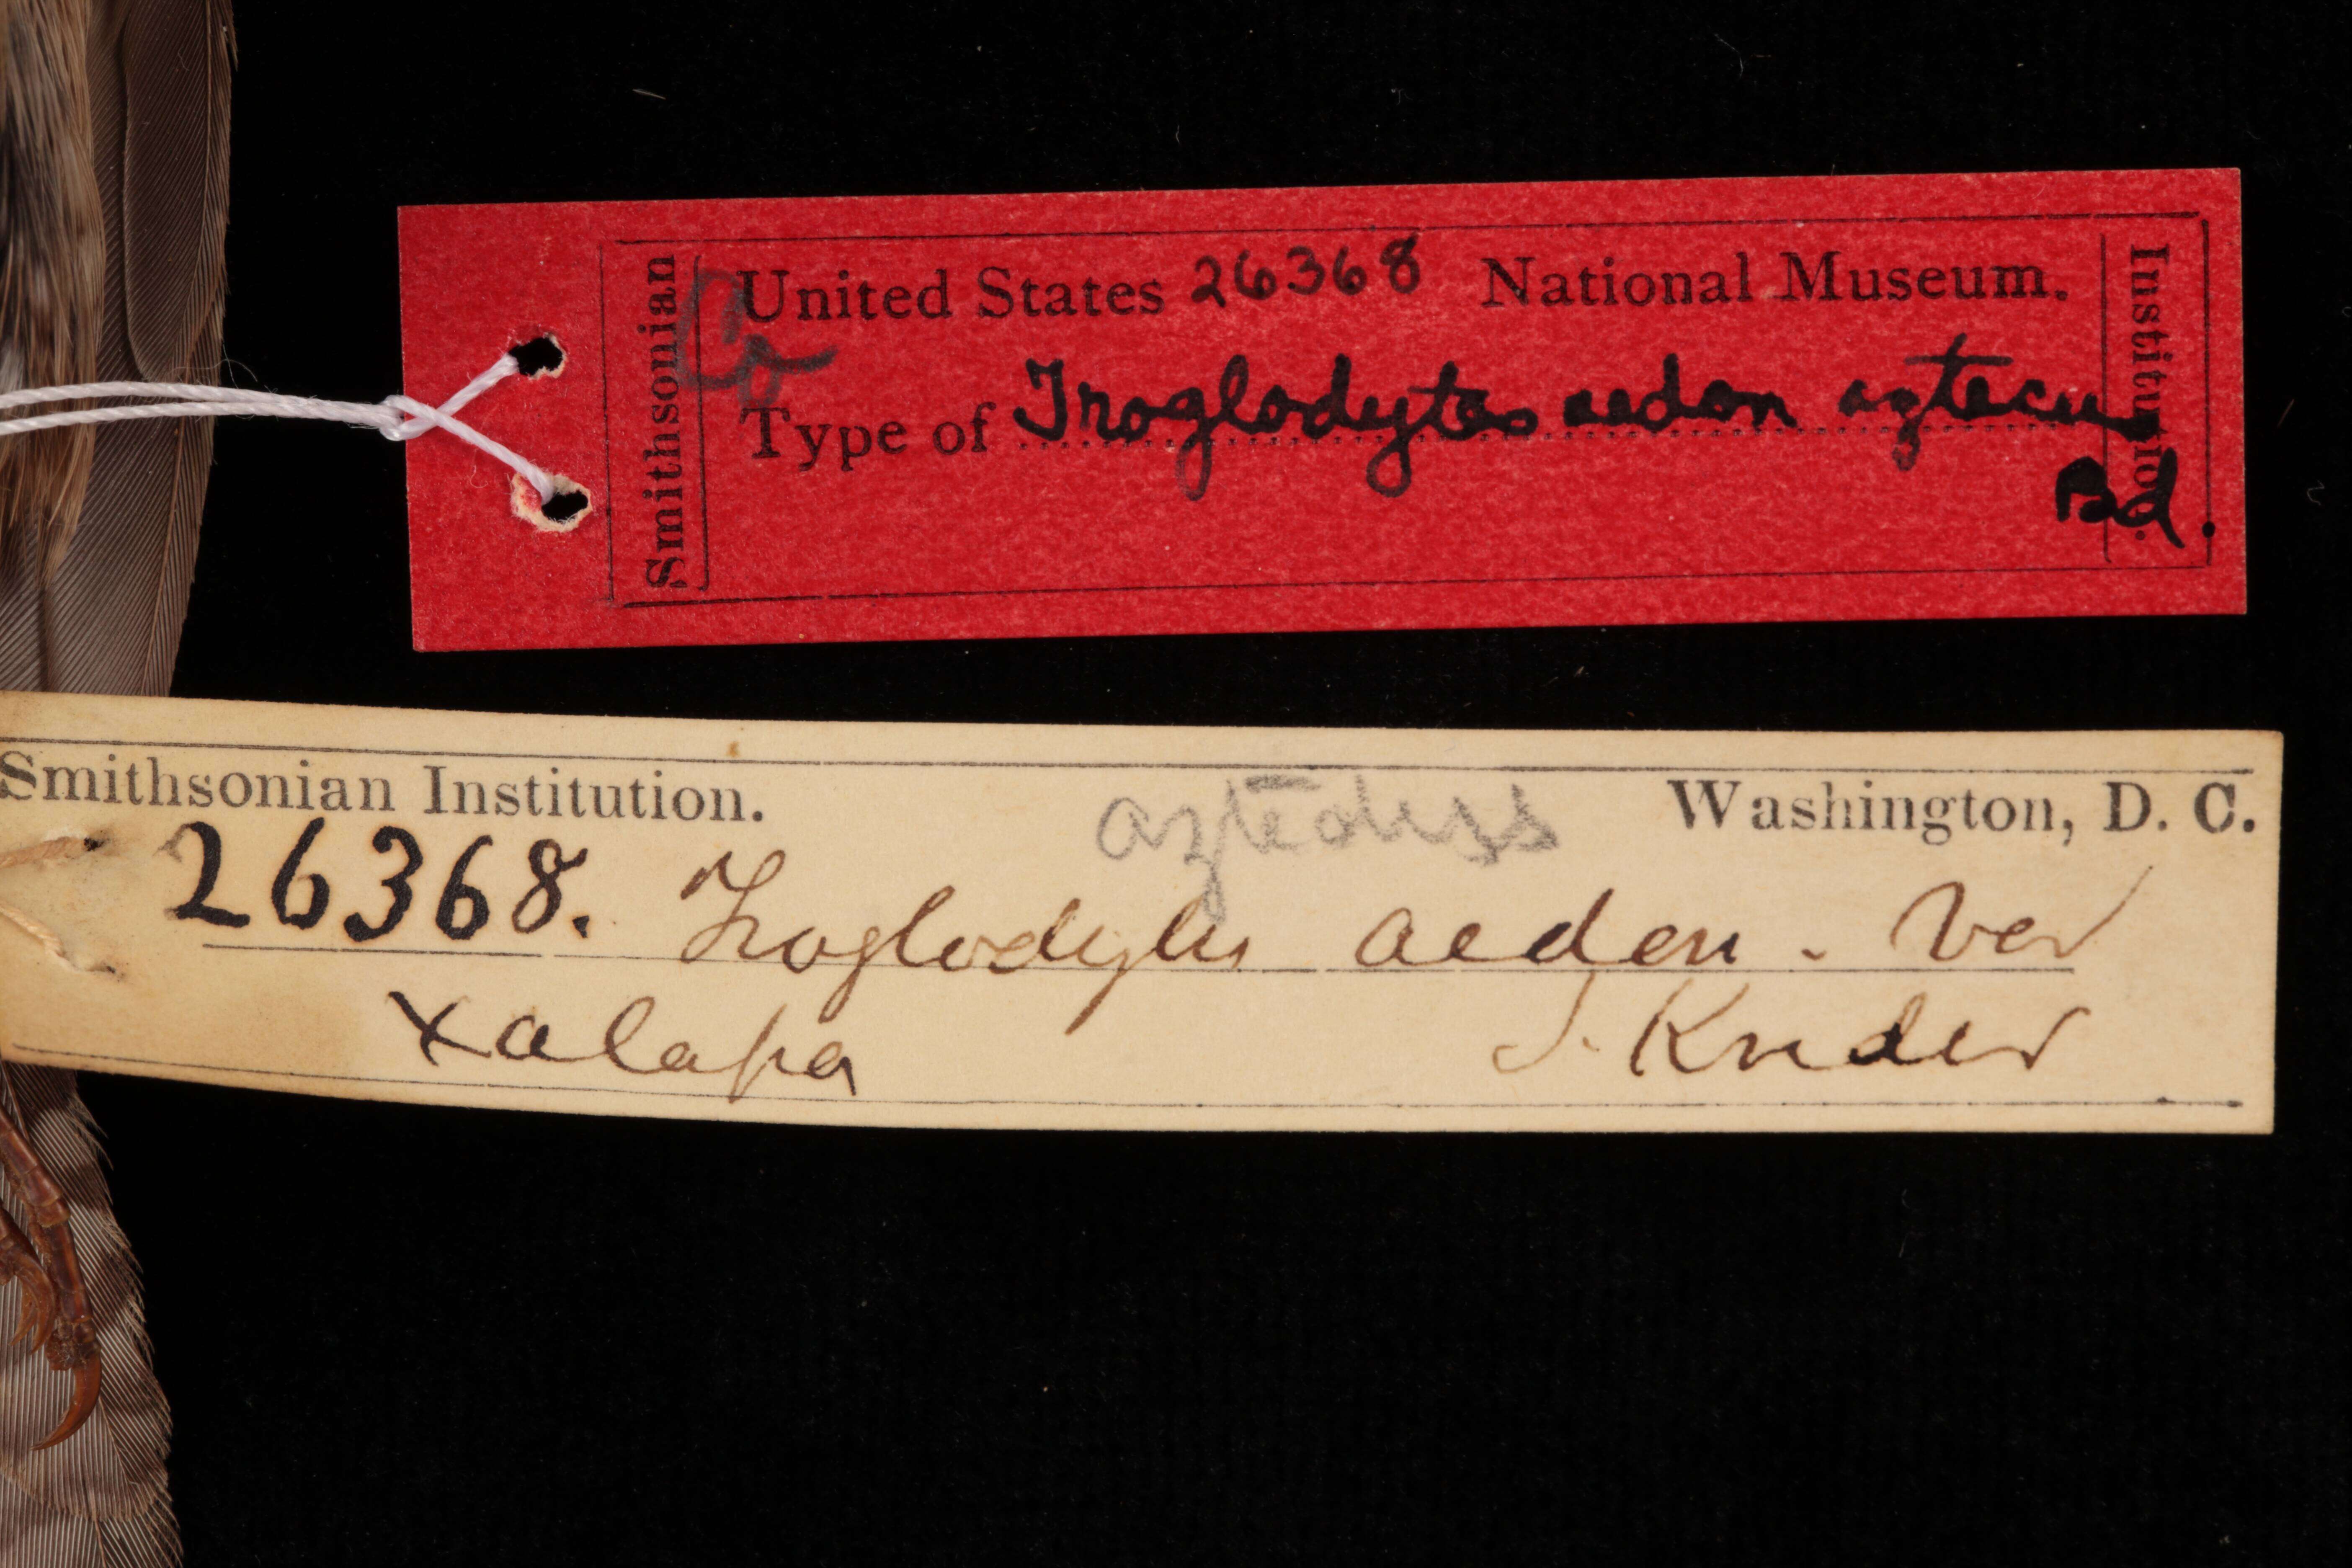 Smithsonian
United States 26368 National Museum.
Co
Type of Troglodytes aedon aztecus
Bd.
Institution.
Smithsonian Institution. Washington, D. C.
26368. Troglodytes aedon. Var
Xalapa J. Krider